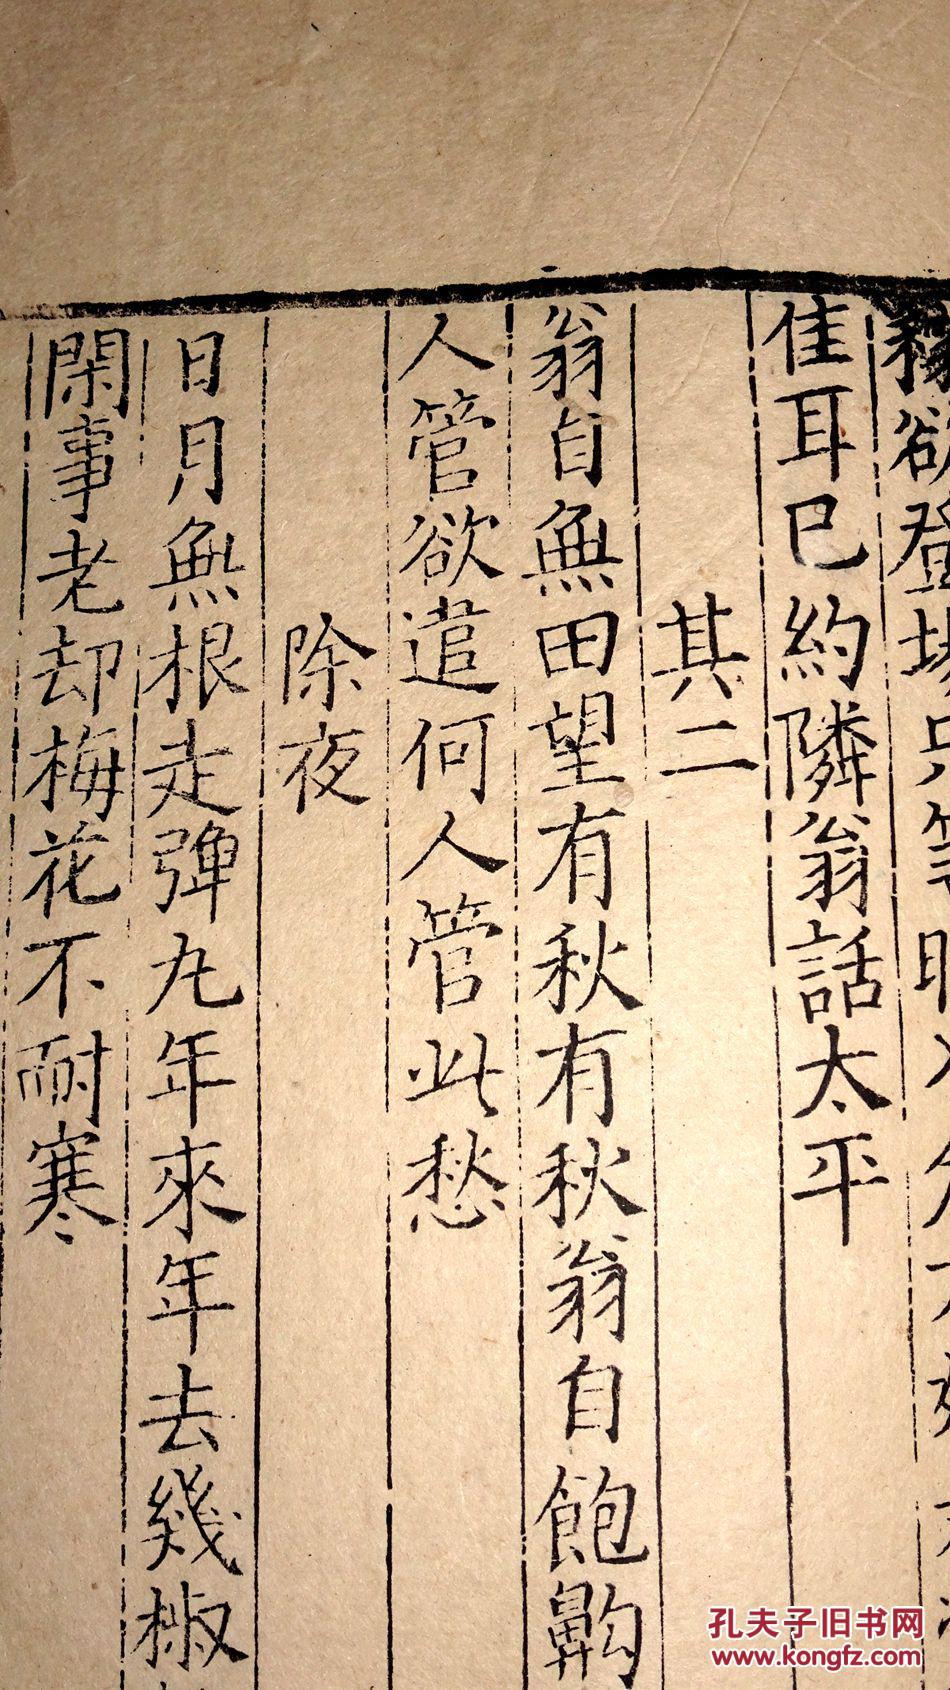 欲登場只等晴
佳耳已約隣翁話太平
其二
翁自無田望有秋有秋翁自飽齁
人管欲遣何人管此愁
除夜
日月無根走彈丸年來年去幾椒
閑事老却梅花不耐寒
孔夫子旧书网
www.kongfz.com